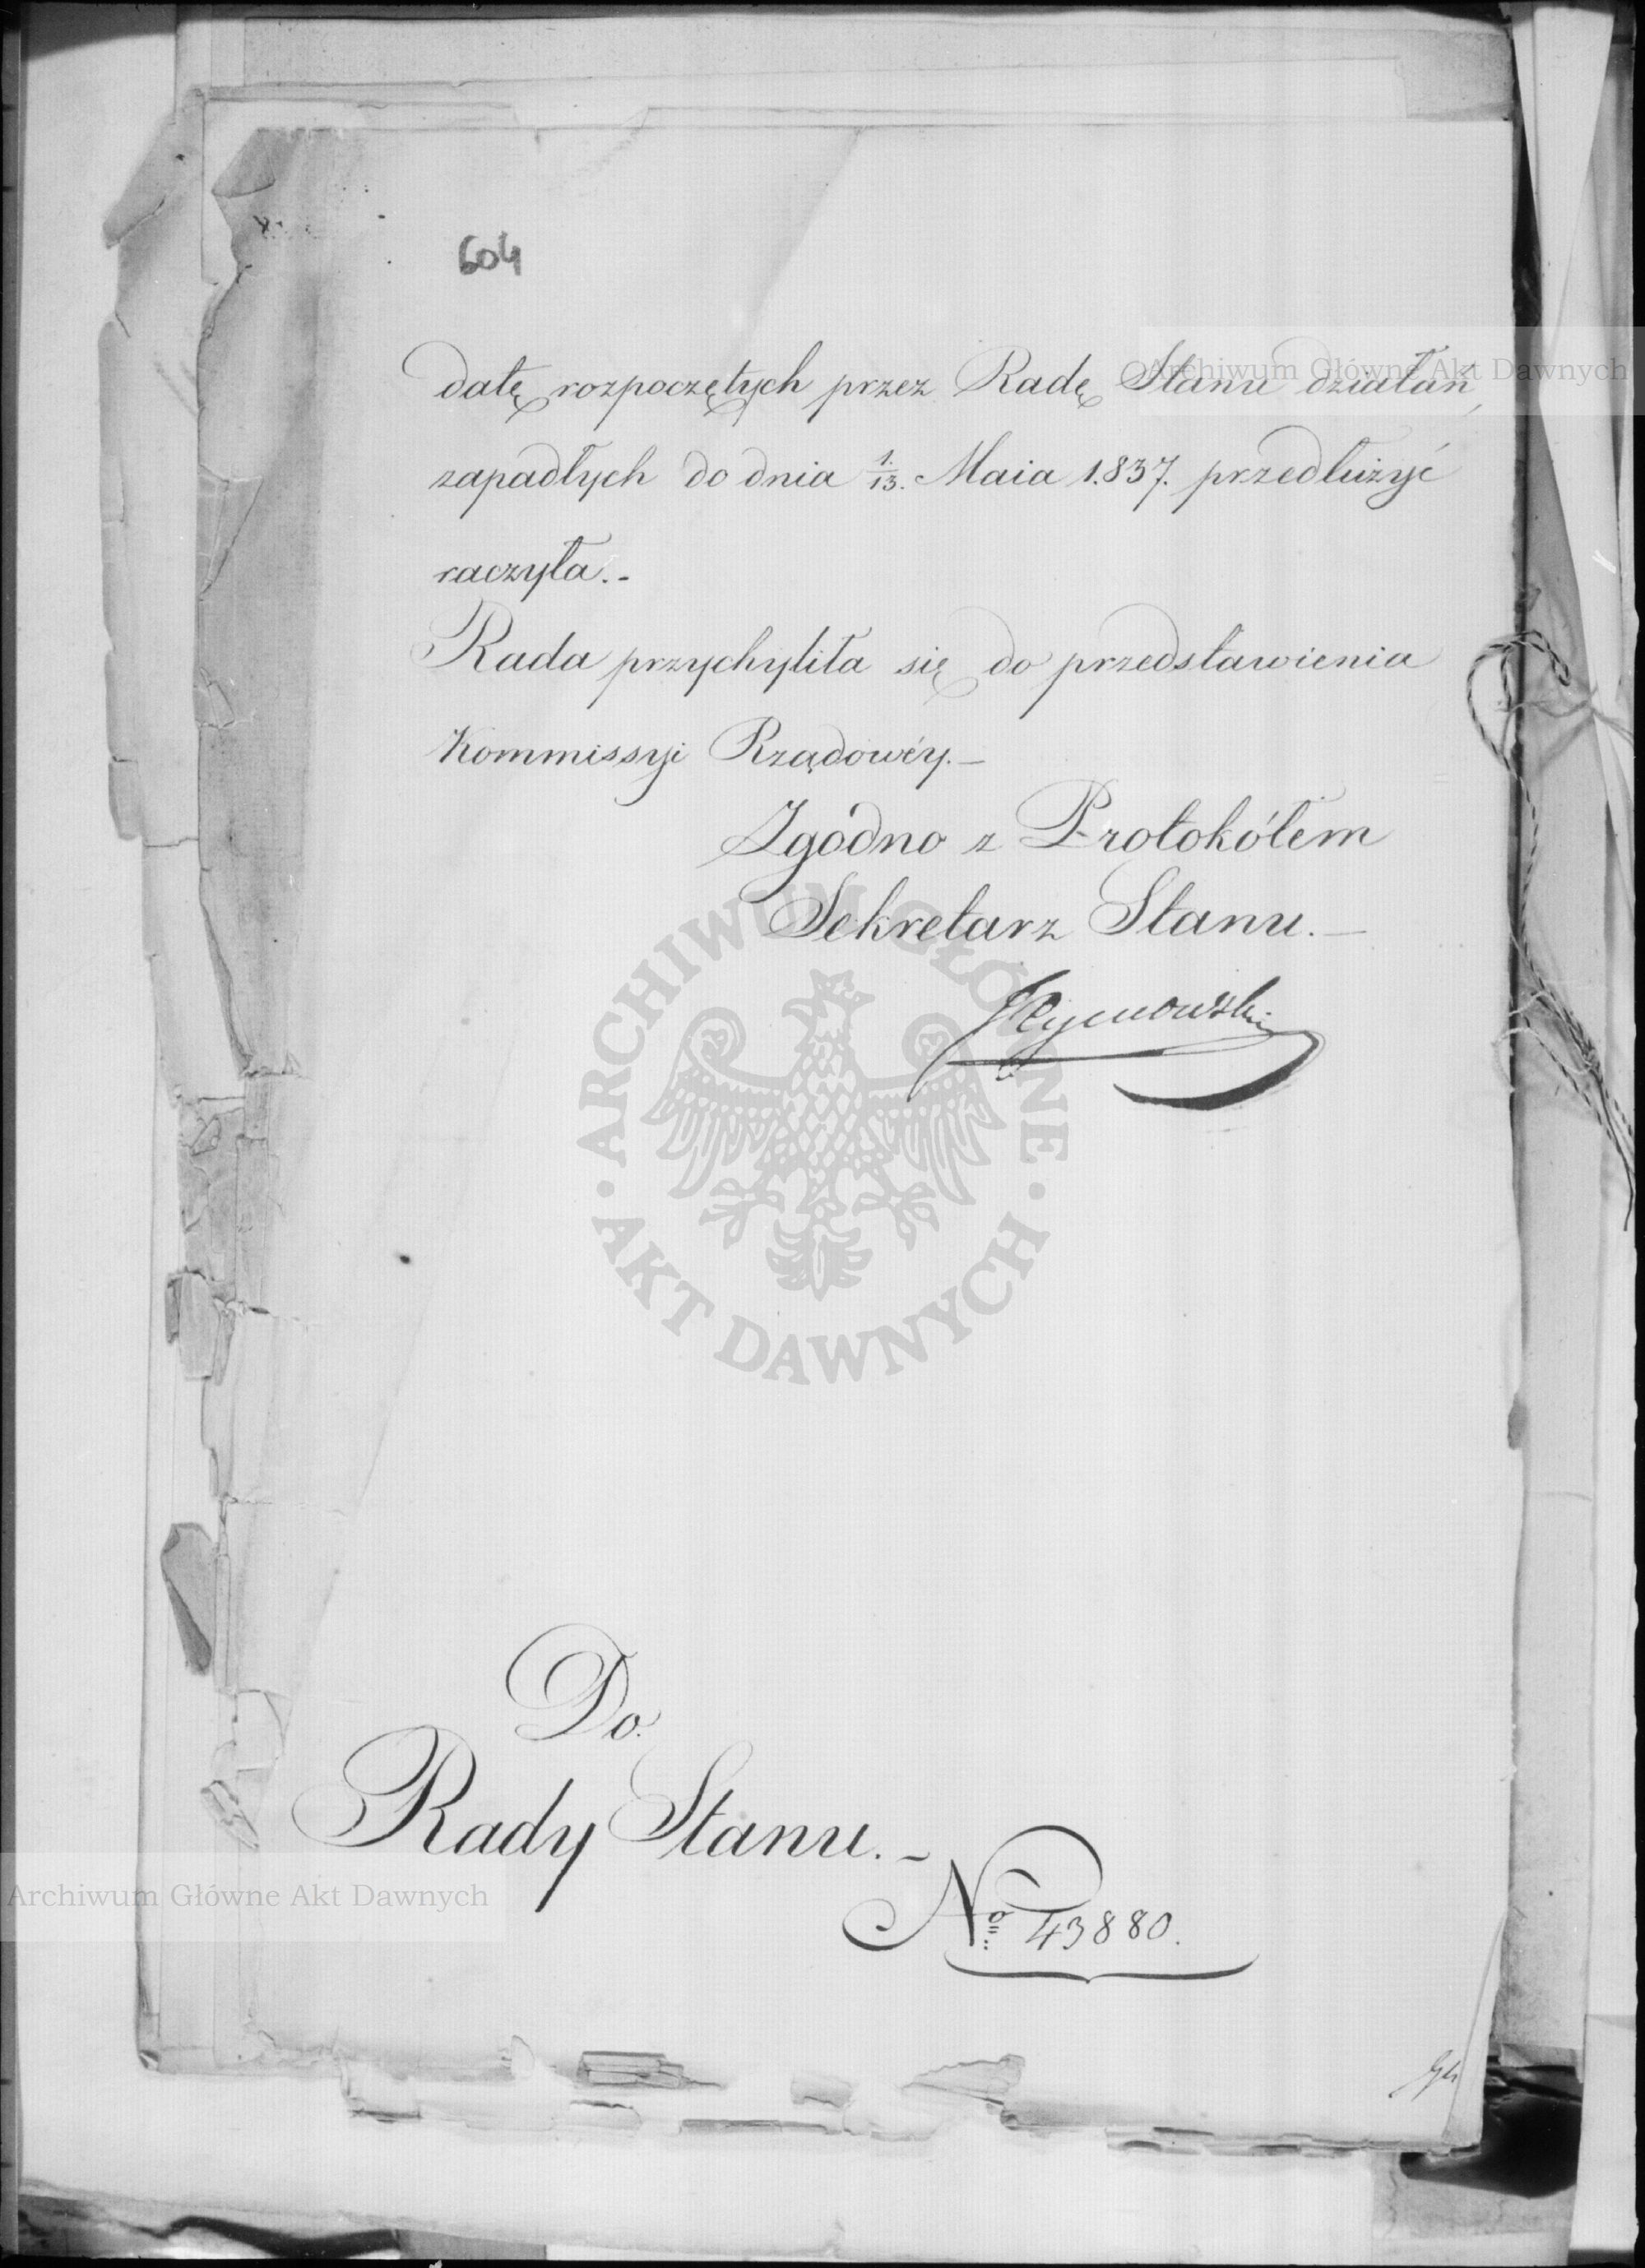 604
datę rozpoczętych przez Radę Stanu działań,
zapadłych do dnia 1./13. Maia 1.837. przedłużyć
raczyła.-
Rada przychyliła się do przedstawienia
Kommissyi Rządowéy.-
Zgodno z Protokółem
Sekretarz Stanu.-
Do.
Rady Stanu.-
No 43880.
Archiwum Główne Akt Dawnych
ARCHIWUM GŁÓWNE
AKT DAWNYCH
Archiwum Główne Akt Dawnych